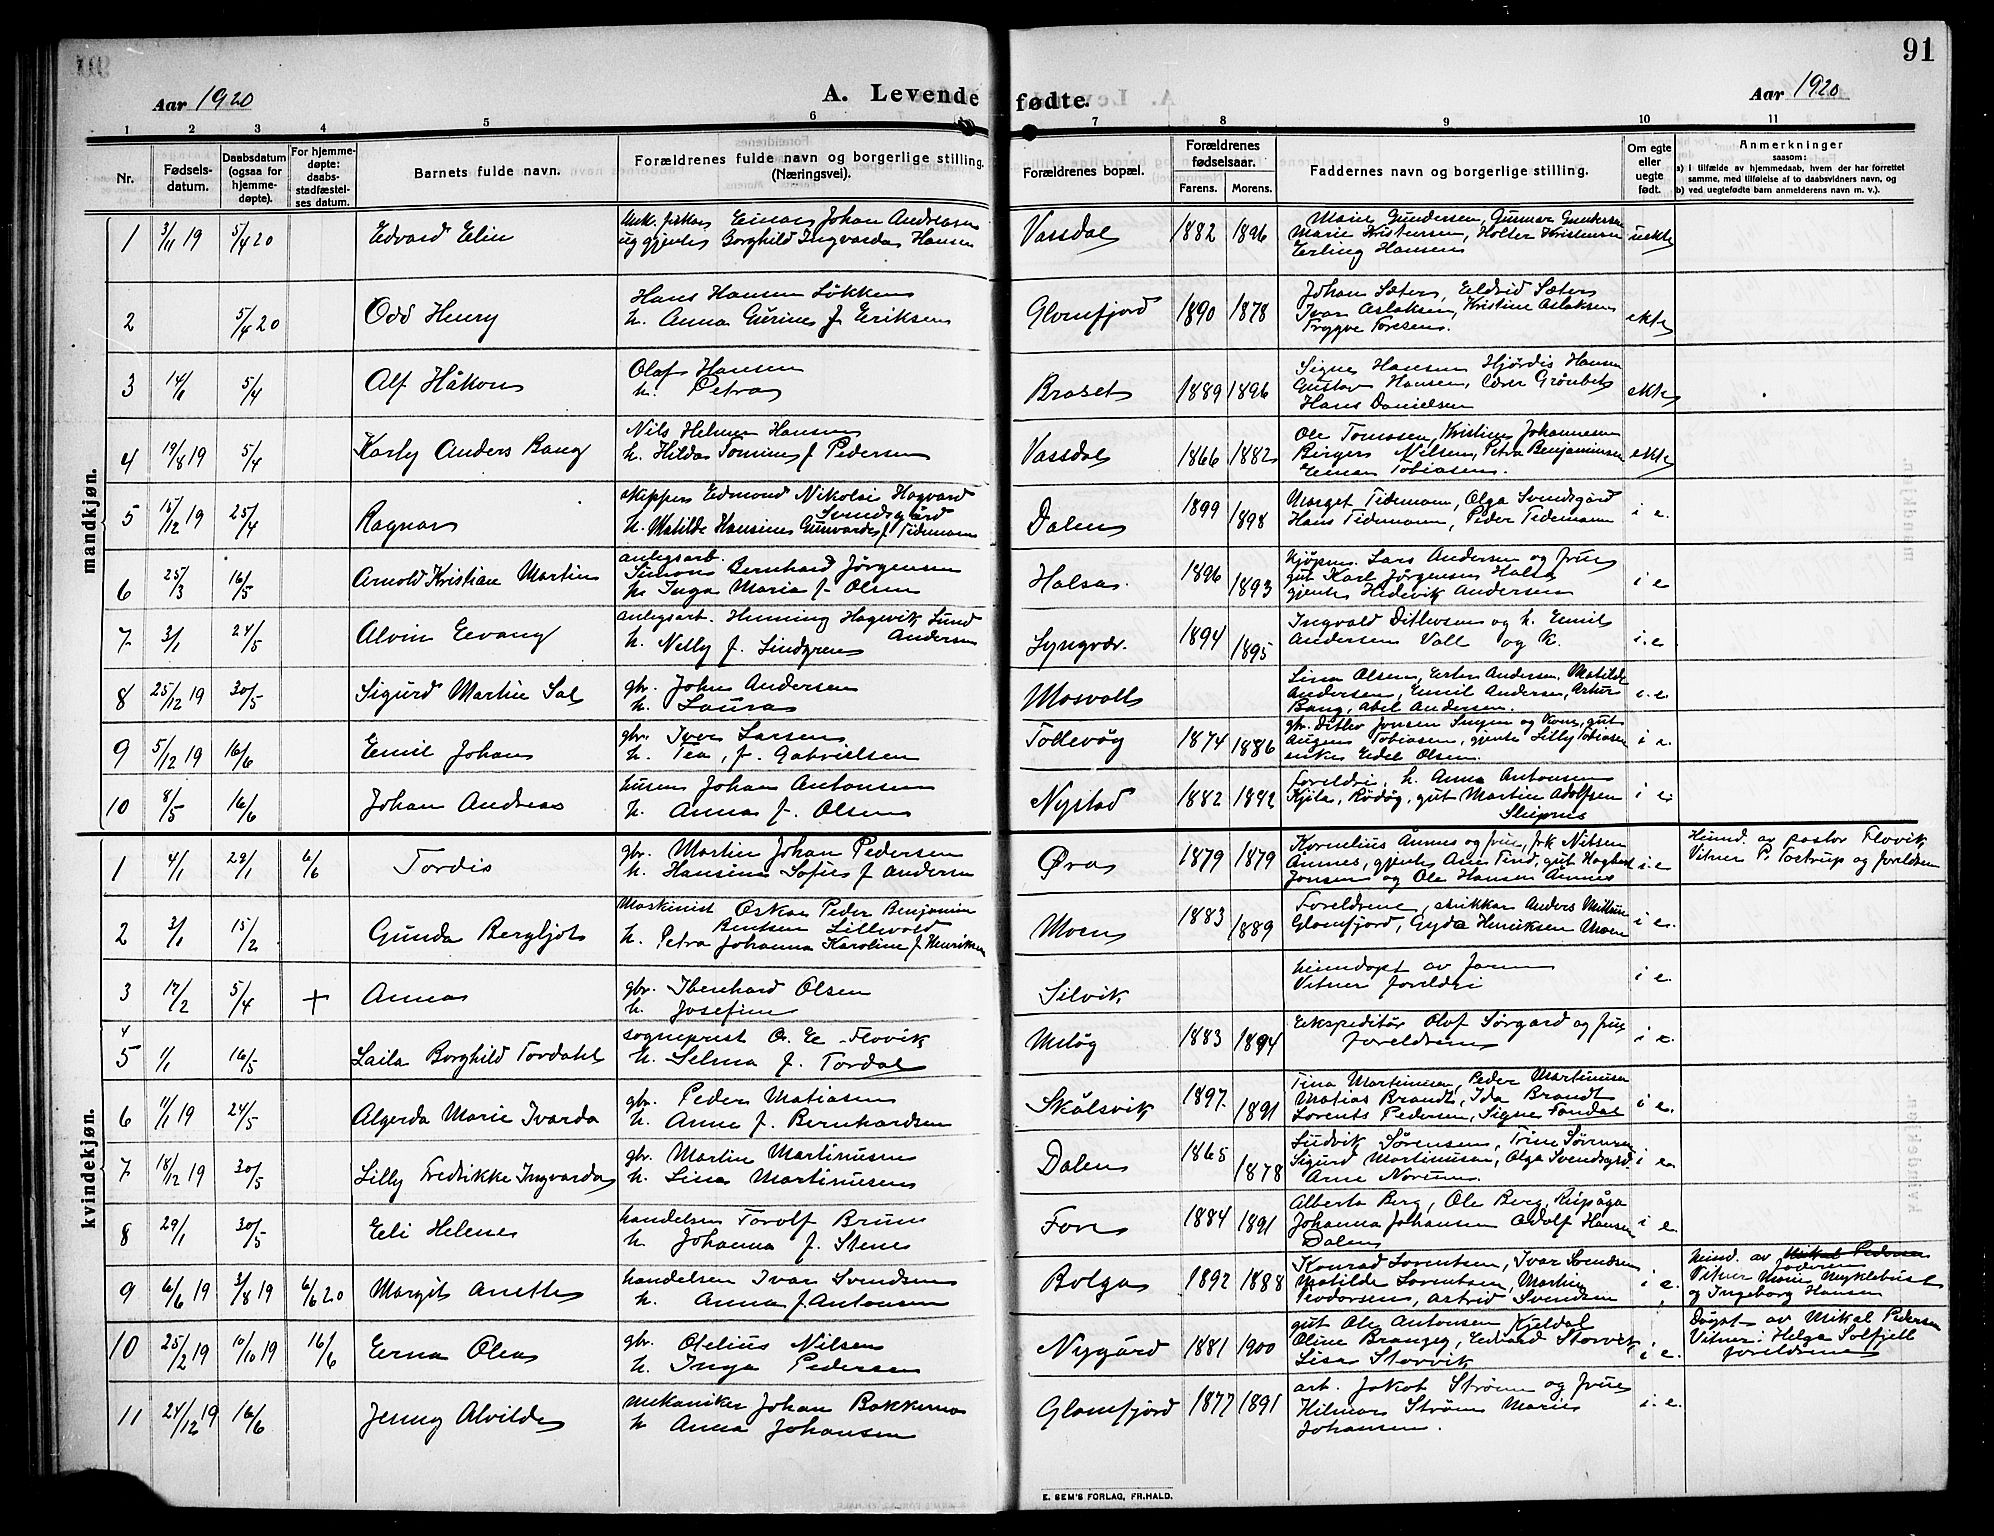 91
Aar 1920
A. Levende fødte.
Aar 1920
1 2 3 4 5 6 7 8 9 10 11
Nr.
Fødsels-
datum.
Daabsdatum
(ogsaa for
hjemme-
døpte).
For hjemme-
døpte:
daabs-
stadfæstel-
ses datum.
Barnets fulde navn.
Forældrenes fulde navn og borgerlige stilling.
(Næringsvei).
Forældrenes bopæl.
Forældrenes
fødselsaar.
Farens. Morens.
Faddernes navn og borgerlige stilling.
Om egte
eller
uegte
født.
Anmerkninger
saasom:
a) i tilfælde av hjemmedaab, hvem der har forrettet
samme, med tilføielse af to daabsvidners navn, og
b) ved uegtefødte barn anmelderens navn m. v.).
mandkjøn.
1 3/11 19 5/4 20 Edvard Elin
Einar Johan Andreasen
Borghild Ingvarda Hansen
Vassdal 1882 1896
Marie Gundersen, Gunnar Gundersen
Marie Kristensen, Holter Kristensen
Erling Hansen
uekte
2 5/4 20 Odd Henry
Hans Hansen Løkken
h. Anna Gurine f. Eriksen
Glomfjord 1890 1878
Johan Sæter, Eldrid Sæter
Ivar Aslaksen, Kristine Aslaksen
Trygve Toresen.
ekte
3 14/6 5/4 Alf Håkon
Olaf Hansen
h. Petra
Braset 1889 1896
Signe Hansen Hjørdis Hansen
Gustav Hansen,
Hans Danielsen
ekte
4 19/8 19 5/4 Karly Anders Bang
Nils Helmer Hansen
h. Hilda Tomine f. Pedersen
Vassdal 1866 1882
Ole Tomasen, Kristine Johannesen
Birger Nilsen, Petra Benjaminsen
Einar Tobiasen.
ekte
5 15/12 19 25/4 Ragnar
skipper Edmond Nikolai Hagvard
Svendsgård
h. Matilde Hansine Gunvarda f. Tidemann
Dalen 1899 1898
Marget Tidemann, Olga Svendsgård
Hans Tidemann, Peder Tidemann
i e.
6 25/3 16/5 Arnold Kristian Martin
anlegsarb.
Simon Bernhard Jørgensen
h. Inga Maria f. Olsen
Halsa. 1896 1893
kjøpm. Lars Andersen og frue
gut Karl Jørgensen Halsa
gjente Hedevik Andersen
i e
7 3/1 24/5 Alvin Eevang
anlegsarb. Henning Hagevik Lund
Andersen
h. Nelly f. Lindgren
Lyngvær. 1894 1895
Ingvald Ditlevsen og h. Emil
Andersen Vall og k.
i. e
8 25/12 19 30/5 Sigurd Martin Sal
gbr. John Andersen
h. Laura
Mosvoll 1
Lina Olsen, Ester Andersen, Matilde
Andersen, Emil Andersen, Artur
Bang, Abel Andersen.
i. e
9 5/12 19 16/6 Emil Johan
gbr. Iver Larsen
h. Tea, f. Gabrielsen
Tollevåg 1874 1886
gbr. Ditlev Jensen
Tobiasen, gjente Lilly Tobiasen
enke Edel Olsen.
i e.
10 8/5 16/6 Johan Andreas
Johan Antonsen
h. Anna f. Olsen
Nystad 1882 1892
Foreldre, h. Anna Antonsen
Kjila, Rødøy, gut Martin Adolfsen
Sleipnes
i e
kvindekjøn.
1 4/1 28/1 6/6 Tordis
gbr. Martin Johan Pedersen
h. Hansina Sofie f. Andersen
Øra 1879 1879
Kornelius Ånnes og frue, frk Nilsen
Ånnes, gjente Find, gut Hagbart
Jensen og Ole Hansen Ånnes
i e
Heimd. av pastor Flovik
Vitner P. Tostrup og foreldren
2 3/1 15/2 Gunda Bergljot
Maskinist Oskar Peder Benjamin
Bentsen Lillevold
h. Petra Johanna Karoline f. Henriksen
Moen 1883 1889
Foreldrene, Anders
Glomfjord, Gyda Henriksen Moen
i e.
3 17/2 5/4 + Anna
gbr. Ibenhard Olsen
h. Josefine
Silvik
heimdøpt av
Vitner foreldre
i e.
4
5 1/1 16/5 Laila Borghild Tordahl
sogneprest O. E. Flovik
h. Selma f. Tordal
Meløy 1883 1894
Ekspeditør Olaf Sørgard og frue
foreldrene
i e.
6 11/1 19 24/5 Algerda Marie Ivarda
gbr. Peder Matiasen
h. Anne f. Bernhardsen
Skålsvik 1897. 1891
Tina Martinusen, Peder Martinusen
Matias Brandt, Ida Brandt
Lorents Pedersen, Signe Fondal
i e.
7 18/12 19 30/5 Lilly Fredrikke Ingvarda
gbr. Martin Martinusen
h. Lina Martinusen
Dalen 1865 1878
Ludvik Sørensen, Trine Sørensen
Sigurd Martinusen, Olga Svendsgård
Arne Norum.
i e.
8 29/1 30/5 Eli Helene
handelsm Torolf Bruun
h. Johanna f. Stene
Forn 1884 1891
Alberta Berg, Ole Berg,
Johanna Johansen Adolf Hansen
Dalen
i e.
9 6/6 19 3/8 19 6/6 20 Margit Anette
handelsm Ivar Svendsen
h. Anna f. Antonsen
Bolga 1892 1888
Konrad Lorentsen, Ivar Svendsen
Matilde Lorentsen, Martin
Teodorsen, Astrid Svendsen
i e.
heimd. av Mikal Pedersen
faderen
Vitner Marie Myklebust
og Ingeborg Hansen
10 25/2 19 10/10 19 16/6 Erna Olea
gbr. Otelius Nilsen
h. Inga Pedersen
Nygård 1881 1900
gut Ole Antonsen Kjeldal
Oline Brangeg, Edvard Storvik
Lisa Storvik
i e.
Døpt av Mikal Pedersen
Vitner: Helga Solfjell
foreldrene
11 24/12 19 16/6 Jenny Alvilde
mekaniker Johan Bakkemo
h Anna Johansen
Glomfjord 1877 1891
arb. Jakob Strøm og frue
Hilmar Strøm Marie
Johansen.
i. e.
E. SEM'S FORLAG, FR.HALD.